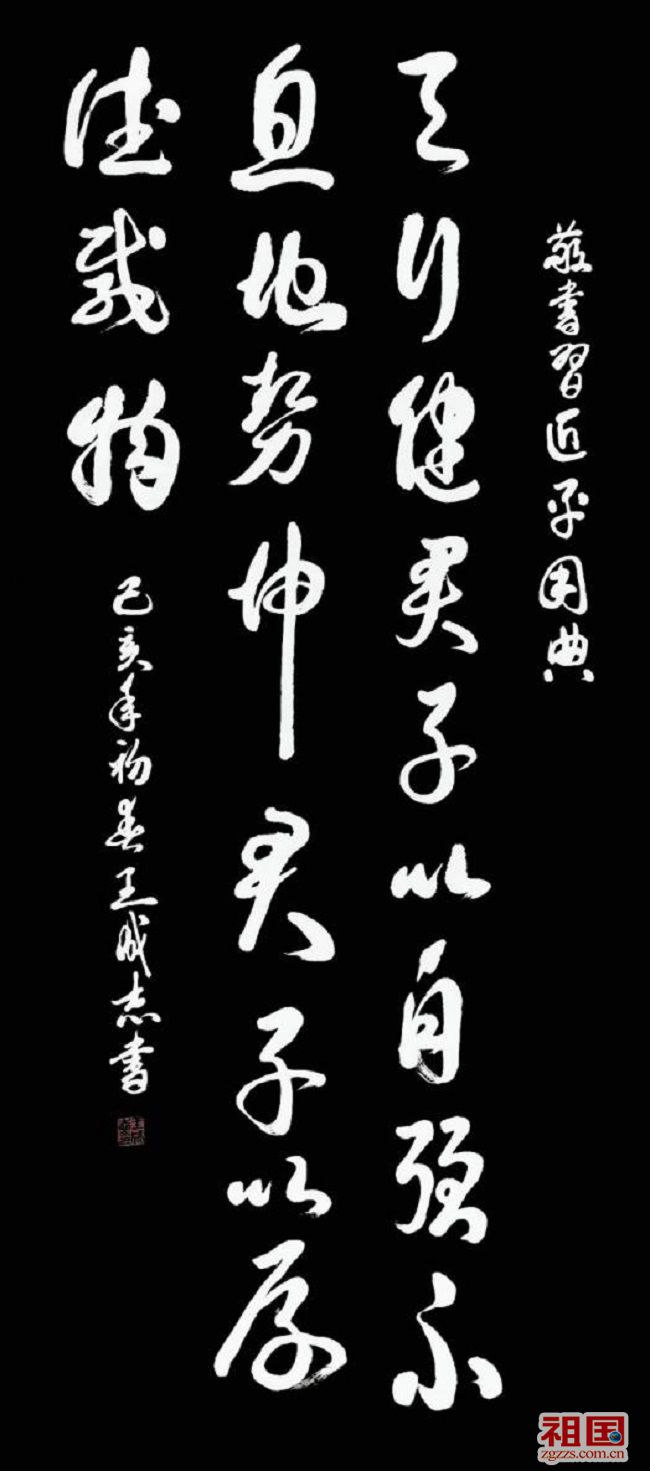 敬书習近平用典
天行健君子以自强不
息地势坤君子以厚
德载物
己亥年初春王成志书
祖国
zgzzs.com.cn